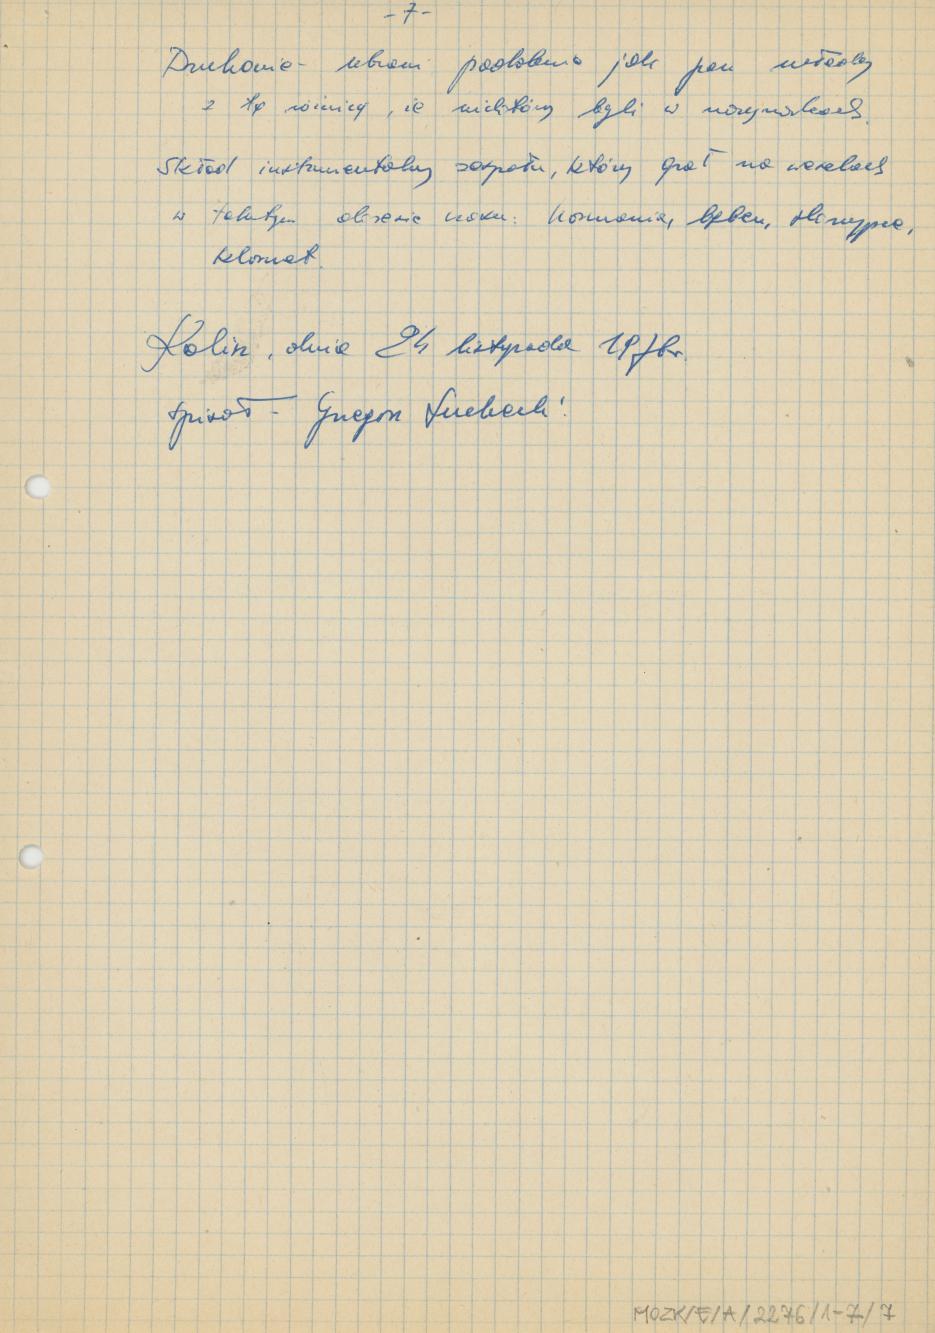 - 7 -
Druhowie - ubrani podobnie jak pan młody
z tą różnicą, że niektórzy byli w marynarkach.
Skład instrumentalny zespołu, który grał na weselach
w tamtym okresie czasu: harmonia, bęben, skrzypce,
klarnet.
Kolin, dnia 24 listopada 1976r.
spisał - Grzegorz
MOZK/E/A/2276/1-7/7